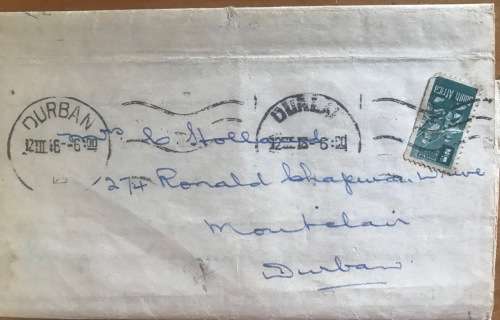 DURBAN
12 III 46 - 6:00
DURBAN
12 III 46 - 6:20
South Africa
Mrs C. Holland
1274 Ronald Chapman Drive
Montclair
Durban